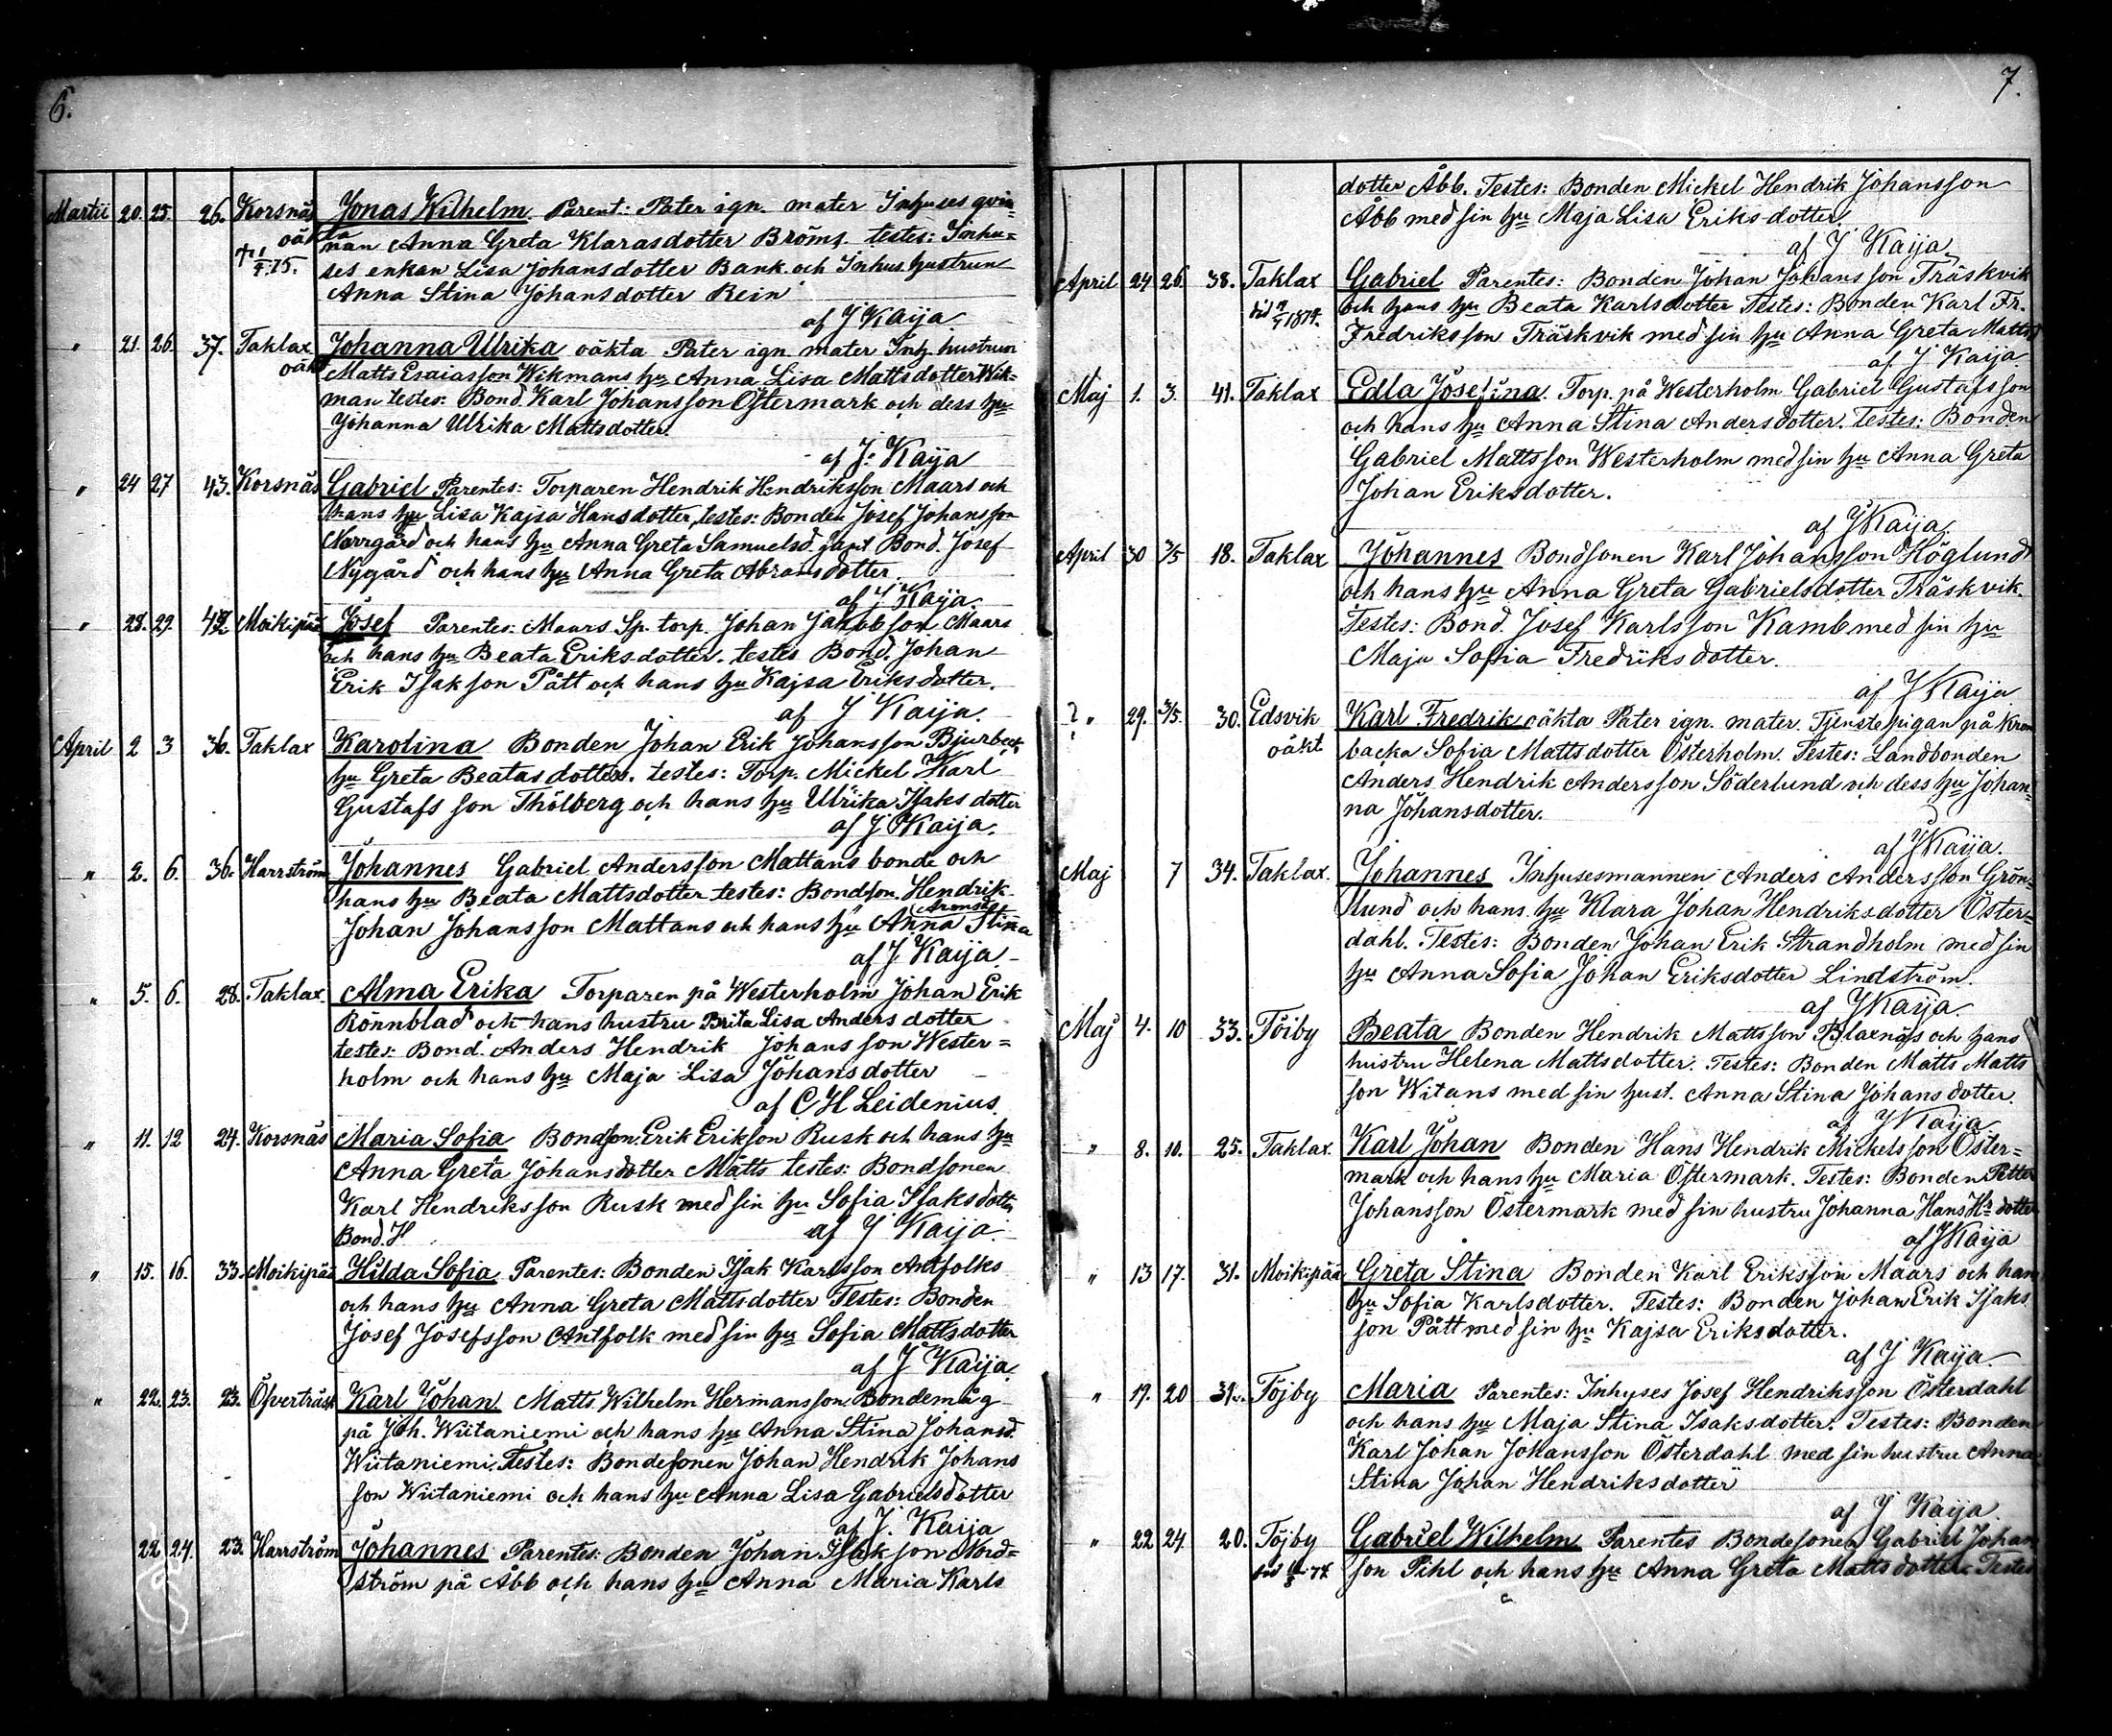 6.
Martii 20. 25. 26. Korsnäs Jonas Wilhelm Parent: Pater ign. mater Inhyses qvin-
oäkta nan Anna Greta Klarasdotter Bröms. testes: Inhy=
ses enkan Lisa Johansdotter Bank och Inhys hustrun
Anna Stina Johansdotter Rein
af J Kaija
" 21. 26. 37. Taklax Johanna Ulrika oäkta Pater ign. mater Inh. hustrun
oäkt Matts Esaiasson Wikmans hu Anna Lisa Mattsdotter Wik=
man testes: Bond. Karl Johansson Östermark och dess hu
Johanna Ulrika Mattsdotter.
af J. Kaija
" 24 27 43. Korsnäs Gabriel Parentes: Torparen Hendrik Hendriksson Maars och
hans hu Lisa Kajsa Hansdotter, testes: Bonden Josef Johansson
Norrgård och hans hu Anna Greta Samuelsd. samt Bond. Josef
Nygård och hans hu Anna Greta Abramsdotter.
af J Kaija
" 28. 29. 42 Moikipää Josef Parentes: Maars Sp. torp. Johan Jakobsson Maars
och hans hu Beata Eriksdotter. testes Bond. Johan
Erik Isakson Pått och hans hu Kajsa Eriksdotter.
af J Kaija.
April 2 3 36. Taklax Karolina Bonden Johan Erik Johansson Bjurbeck
hu Greta Beatasdotter. testes: Torp. Mickel Karl
Gustafsson Thölberg och hans hu Ulrika Isaksdotter
af J Kaija.
" 2. 6. 36. Harrström Johannes Gabriel Andersson Mattans bonde och
hans hu Beata Mattsdotter testes: Bondson Hendrik
Aronsd
Johan Johansson Mattans och hans hu Anna Stina
af J. Kaija
" 5. 6. 28. Taklax Alma Erika Torparen på Westerholm Johan Erik
Rönnblad och hans hustru Brita Lisa Andersdotter
testes: Bond. Anders Hendrik Johansson Wester=
holm och hans hu Maja Lisa Johansdotter
af C H Leidenius
" 11. 12 24. Korsnäs Maria Sofia Bondson. Erik Erikson Rusk och hans hu
Anna Greta Johansdotter Matts testes: Bondsonen
Karl Hendriksson Rusk med sin hu Sofia Isaksdotter
Bond. H af J Kaija
" 15. 16. 33. Moikipää Hilda Sofia Parentes: Bonden Isak Karlsson Antfolks
och hans hu Anna Greta Mattsdotter Testes: Bonden
Josef Josefsson Antfolk med sin hu Sofia Mattsdotter
af J Kaija.
" 22. 23. 23. Öfverträsk Karl Johan Matts Wilhelm Hermansson Bondemåg
på Joh. Wiitaniemi och hans hu Anna Stina Johansd.
Wiitaniemi. Testes: Bondesonen Johan Hendrik Johans
son Wiitaniemi och hans hu Anna Lisa Gabrielsdotter
af J. Kaija
22 24. 23. Harrström Johannes Parentes: Bonden Johan Isakson Nord=
ström på Åbb och hans hu Anna Maria Karls
7.
dotter Åbb. Testes: Bonden Mickel Hendrik Johansson
Åbb med sin hu Maja Lisa Eriksdotter
af J Kaija
April 24 26. 38. Taklax Gabriel Parentes: Bonden Johan Johansson Träskvik
och hans hu Beata Karlsdotter Testes: Bonden Karl Fr.
Fredriksson Träskvik med sin hu Anna Greta Mattsd
af J Kaija
Maj 1. 3. 41. Taklax Edla Josefina. Torp. på Westerholm Gabriel Gustafsson
och hans hu Anna Stina Andersdotter. Testes: Bonden
Gabriel Mattsson Westerholm med sin hu Anna Greta
Johan Eriksdotter.
af J Kaija
April 30 3/5 18. Taklax Johannes Bondsonen Karl Johansson Höglund
och hans hu Anna Greta Gabrielsdotter Träskvik.
Testes: Bond. Josef Karlsson Kamb med sin hu
Maja Sofia Fredriksdotter.
af J Kaija
? " 29. 3/5. 30. Edsvik Karl Fredrik oäkta Pater ign. mater. Tjenstepigan på Kron
oäkt backa Sofia Mattsdotter Österholm. Testes: Landbonden
Anders Hendrik Andersson Söderlund och dess hu Johan=
na Johansdotter.
af J Kaija.
Maj 7 34. Taklax. Johannes Inhysesmannen Anders Andersson Grön=
lund och hans hu Klara Johan Hendriksdotter Öster=
dahl. Testes: Bonden Johan Erik Strandholm med sin
hu Anna Sofia Johan Eriksdotter Lindström.
af J Kaija.
Maj 4. 10 33. Töiby Beata Bonden Hendrik Mattsson Blaxnäs och hans
hustru Helena Mattsdotter. Testes: Bonden Matts Matts
son Witans med sin hust. Anna Stina Johansdotter.
af J Kaija
" 8. 10. 25. Taklax. Karl Johan Bonden Hans Hendrik Mickelsson Öster=
mark och hans hu Maria Östermark. Testes: Bonden Petter
Johansson Östermark med sin hustru Johanna Hans Hs dotter
af J Kaija
" 13 17. 31. Moikipää Greta Stina Bonden Karl Eriksson Maars och han
hu Sofia Karlsdotter. Testes: Bonden Johan Erik Isaks
son Pått med sin hu Kajsa Eriksdotter.
af J Kaija.
" 19. 20 31. Töjby Maria Parentes: Inhyses Josef Hendriksson Österdahl
och hans hu Maja Stina Isaksdotter. Testes: Bonden
Karl Johan Johansson Österdahl med sin hustru Anna
Stina Johan Hendriksdotter
af J Kaija.
" 22 24. 20. Töjby Gabriel Wilhelm Parentes Bondesonen Gabriel Johan
son Pihl och hans hu Anna Greta Mattsdotter Testes